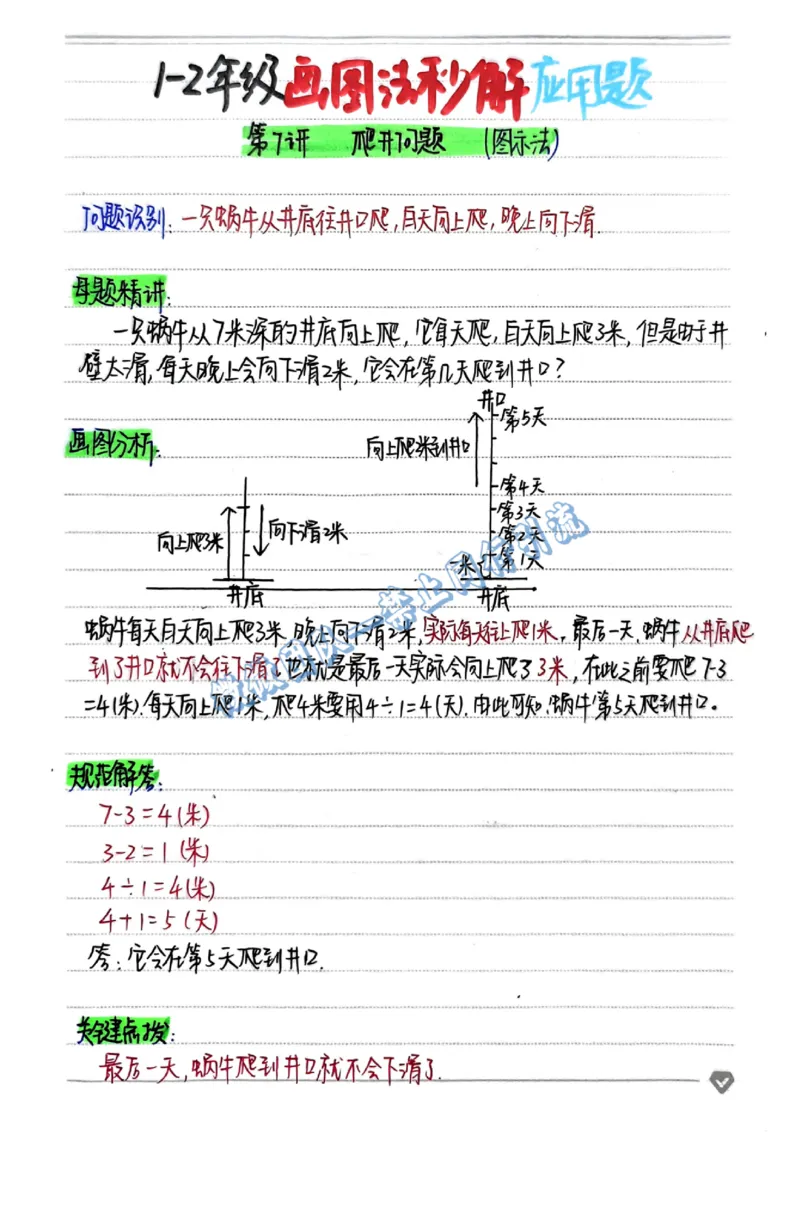 1-2年级画图法秒解应用题
第7讲 爬井问题 (图示法)
问题识别:一只蜗牛从井底往井口爬,白天向上爬,晚上向下滑.
母题精讲:
一只蜗牛从7米深的井底向上爬,它每天爬,白天向上爬3米,但是由于井
壁太滑,每天晚上会向下滑2米,它会在第几天爬到井口?
画图分析:
向上爬3米
向下滑2米
井底
井口
第5天
向上爬3米到井口
第4天
第3天
第2天
第1天
一米
井底
蜗牛每天白天向上爬3米,晚上向下滑2米,实际每天往上爬1米,最后一天,蜗牛从井底爬
到了井口就不会往下滑了也就是最后一天实际会向上爬了3米,在此之前要爬7-3
=4(米).每天向上爬1米,爬4米要用4÷1=4(天).由此可知.蜗牛第5天爬到井口。
规范解答:
7-3=4(米)
3-2=1(米)
4÷1=4(米)
4+1=5(天)
答:它会在第5天爬到井口.
关键点拨:
最后一天,蜗牛爬到井口就不会下滑了.